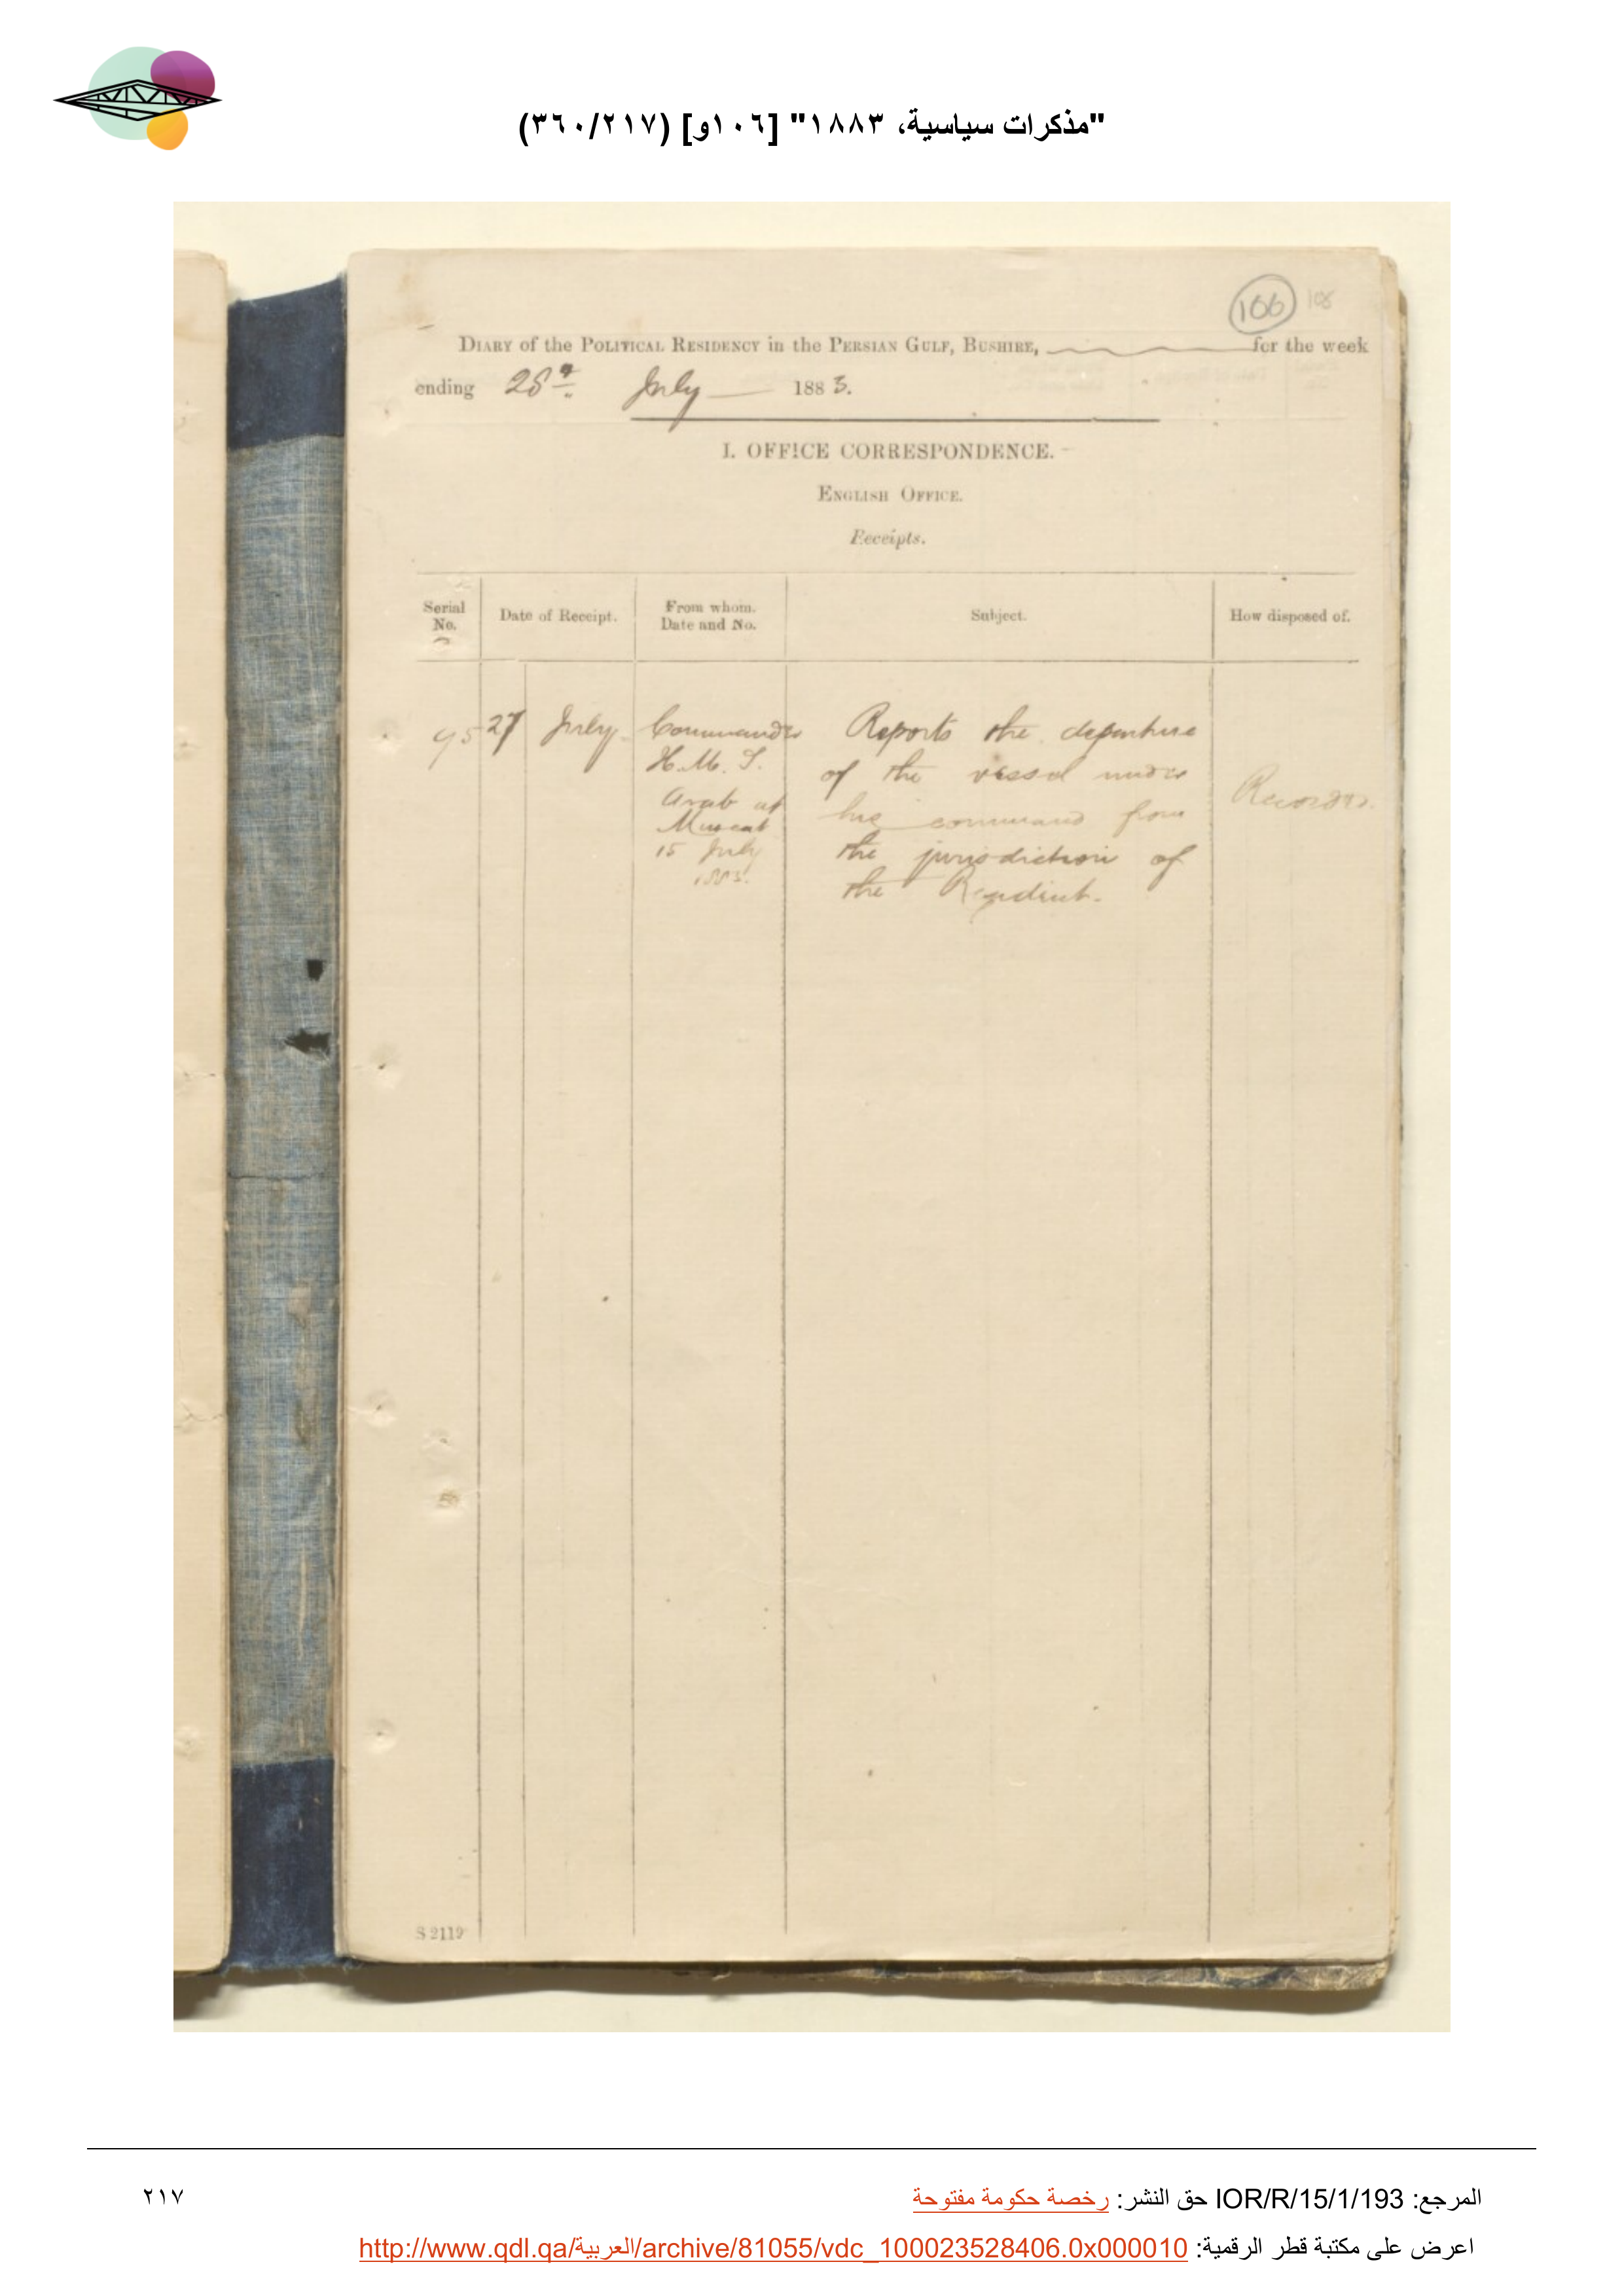 "مذكرات سياسية، ١٨٨٣" [١٠٦و] (٣٦٠/٢١٧)
106 108
DIARY of the POLITICAL RESIDENCY in the PERSIAN GULF, BUSHIRE, for the week
ending 28th July 1883.
I. OFFICE CORRESPONDENCE.
ENGLISH OFFICE.
Receipts.
Serial No.
Date of Receipt.
From whom. Date and No.
Subject.
How disposed of.
95
27 July
Commander
H.M.S.
Arab at
Muscat
15 July
1883.
Reports the departure
of the vessel under
his command from
the jurisdiction of
the Resident.
Recorded.
S 2119
المرجع: IOR/R/15/1/193 حق النشر: رخصة حكومة مفتوحة
٢١٧
اعرض على مكتبة قطر الرقمية: http://www.qdl.qa/العربية/archive/81055/vdc_100023528406.0x000010